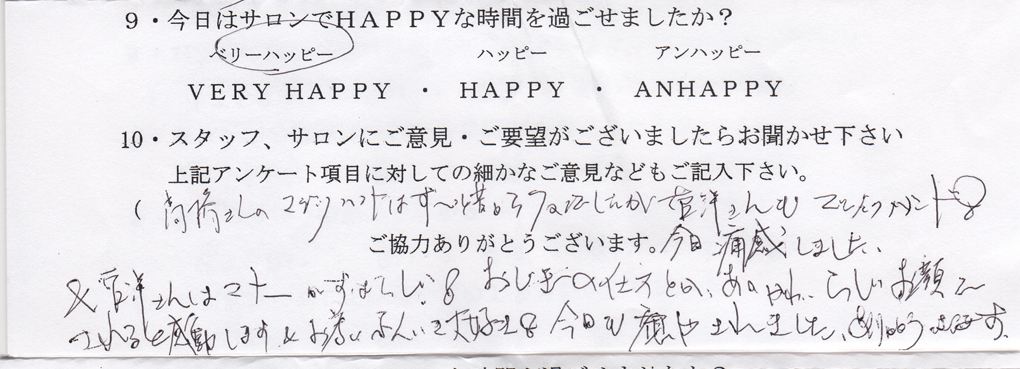 9・今日はサロンでHAPPYな時間を過ごせましたか？
ベリーハッピー ハッピー アンハッピー
VERY HAPPY ・ HAPPY ・ ANHAPPY
10・スタッフ、サロンにご意見・ご要望がございましたらお聞かせ下さい
上記アンケート項目に対しての細かなご意見などもご記入下さい。
(高橋さんの マジックハンドはずーっと昔から でしたが 宮洋さんも マジックハンド
ご協力ありがとうございます。今日 痛感しました、
宮洋さんはマナーがすばらしい。 おじぎの仕方とか、あの やわらかい お顔で
されると感動します お若い 大好き 今日も 癒やされました、ありがとうございます。